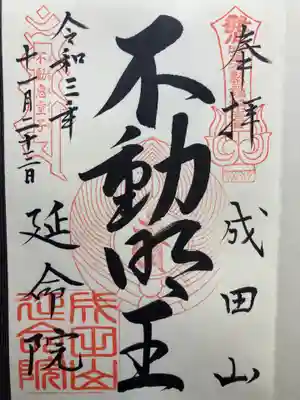 奉拝
成田山
不動明王
令和三年
十一月二十二日
延命院
成田山
延命院